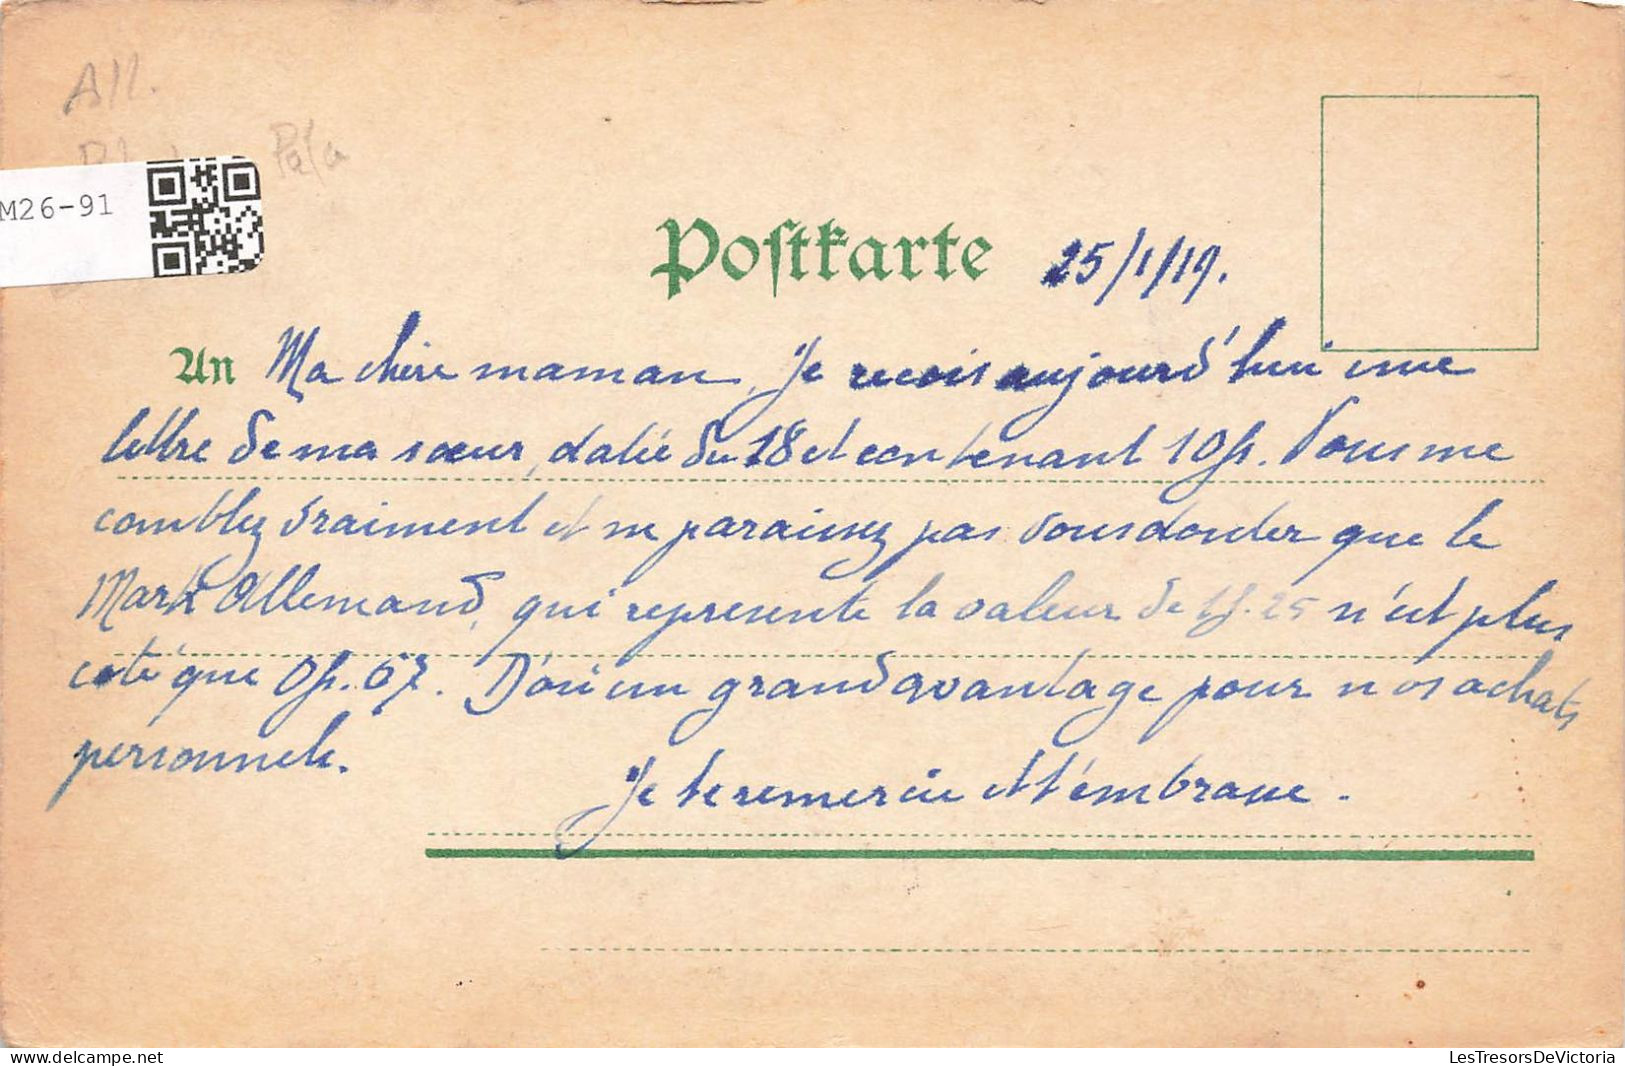 All.
Pala
M26-91
Postkarte 25/1/19.
An Ma chère maman, Je recois aujourd'hui une
lettre de ma sœur, datée du 18 et contenant 10fr. Vous me
comblez vraiment et ne paraissez pas vous douter que le
Mark Allemand, qui represente la valeur de 1f.25 n'est plus
coté que 0fr.67. D'où un grand avantage pour nos achats
personnels.
Je te remercie et t'embrasse.
LesTresorsDeVictoria
delcampe.net